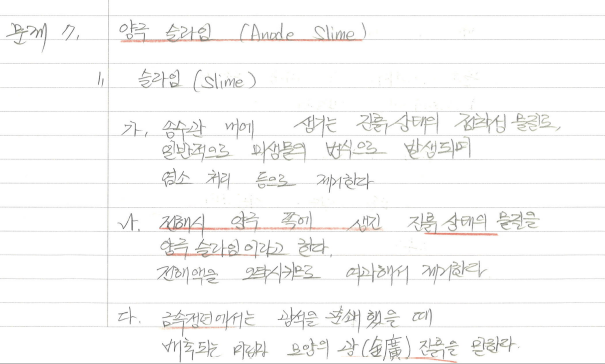 문제 7. 양극 슬라임 (Anode Slime)
1) 슬라임 (Slime)
가. 송수관 내에 생기는 진흙 상태의 점착성 물질로,
일반적으로 미생물의 번식으로 발생되며
염소 처리 등으로 제거한다
나. 전해시 양극 쪽에 생긴 진흙 상태의 물질을
양극 슬라임이라고 한다.
전해액을 오탁시키므로 여과해서 제거한다
다. 금속정련에서는 광석을 분쇄했을 때
배출되는 모양의 광(金廣) 진흙을 말한다.